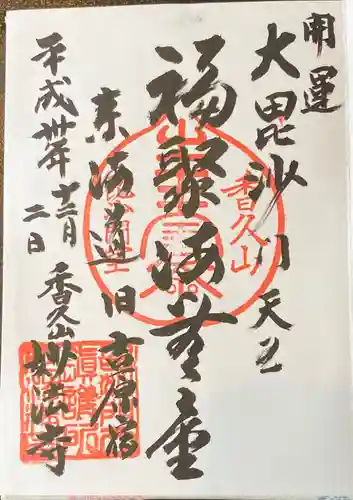 開運
大毘沙門天王
福聚海無量
東海道旧吉原宿
平成卅年十二月二日
香久山妙法寺
香久山